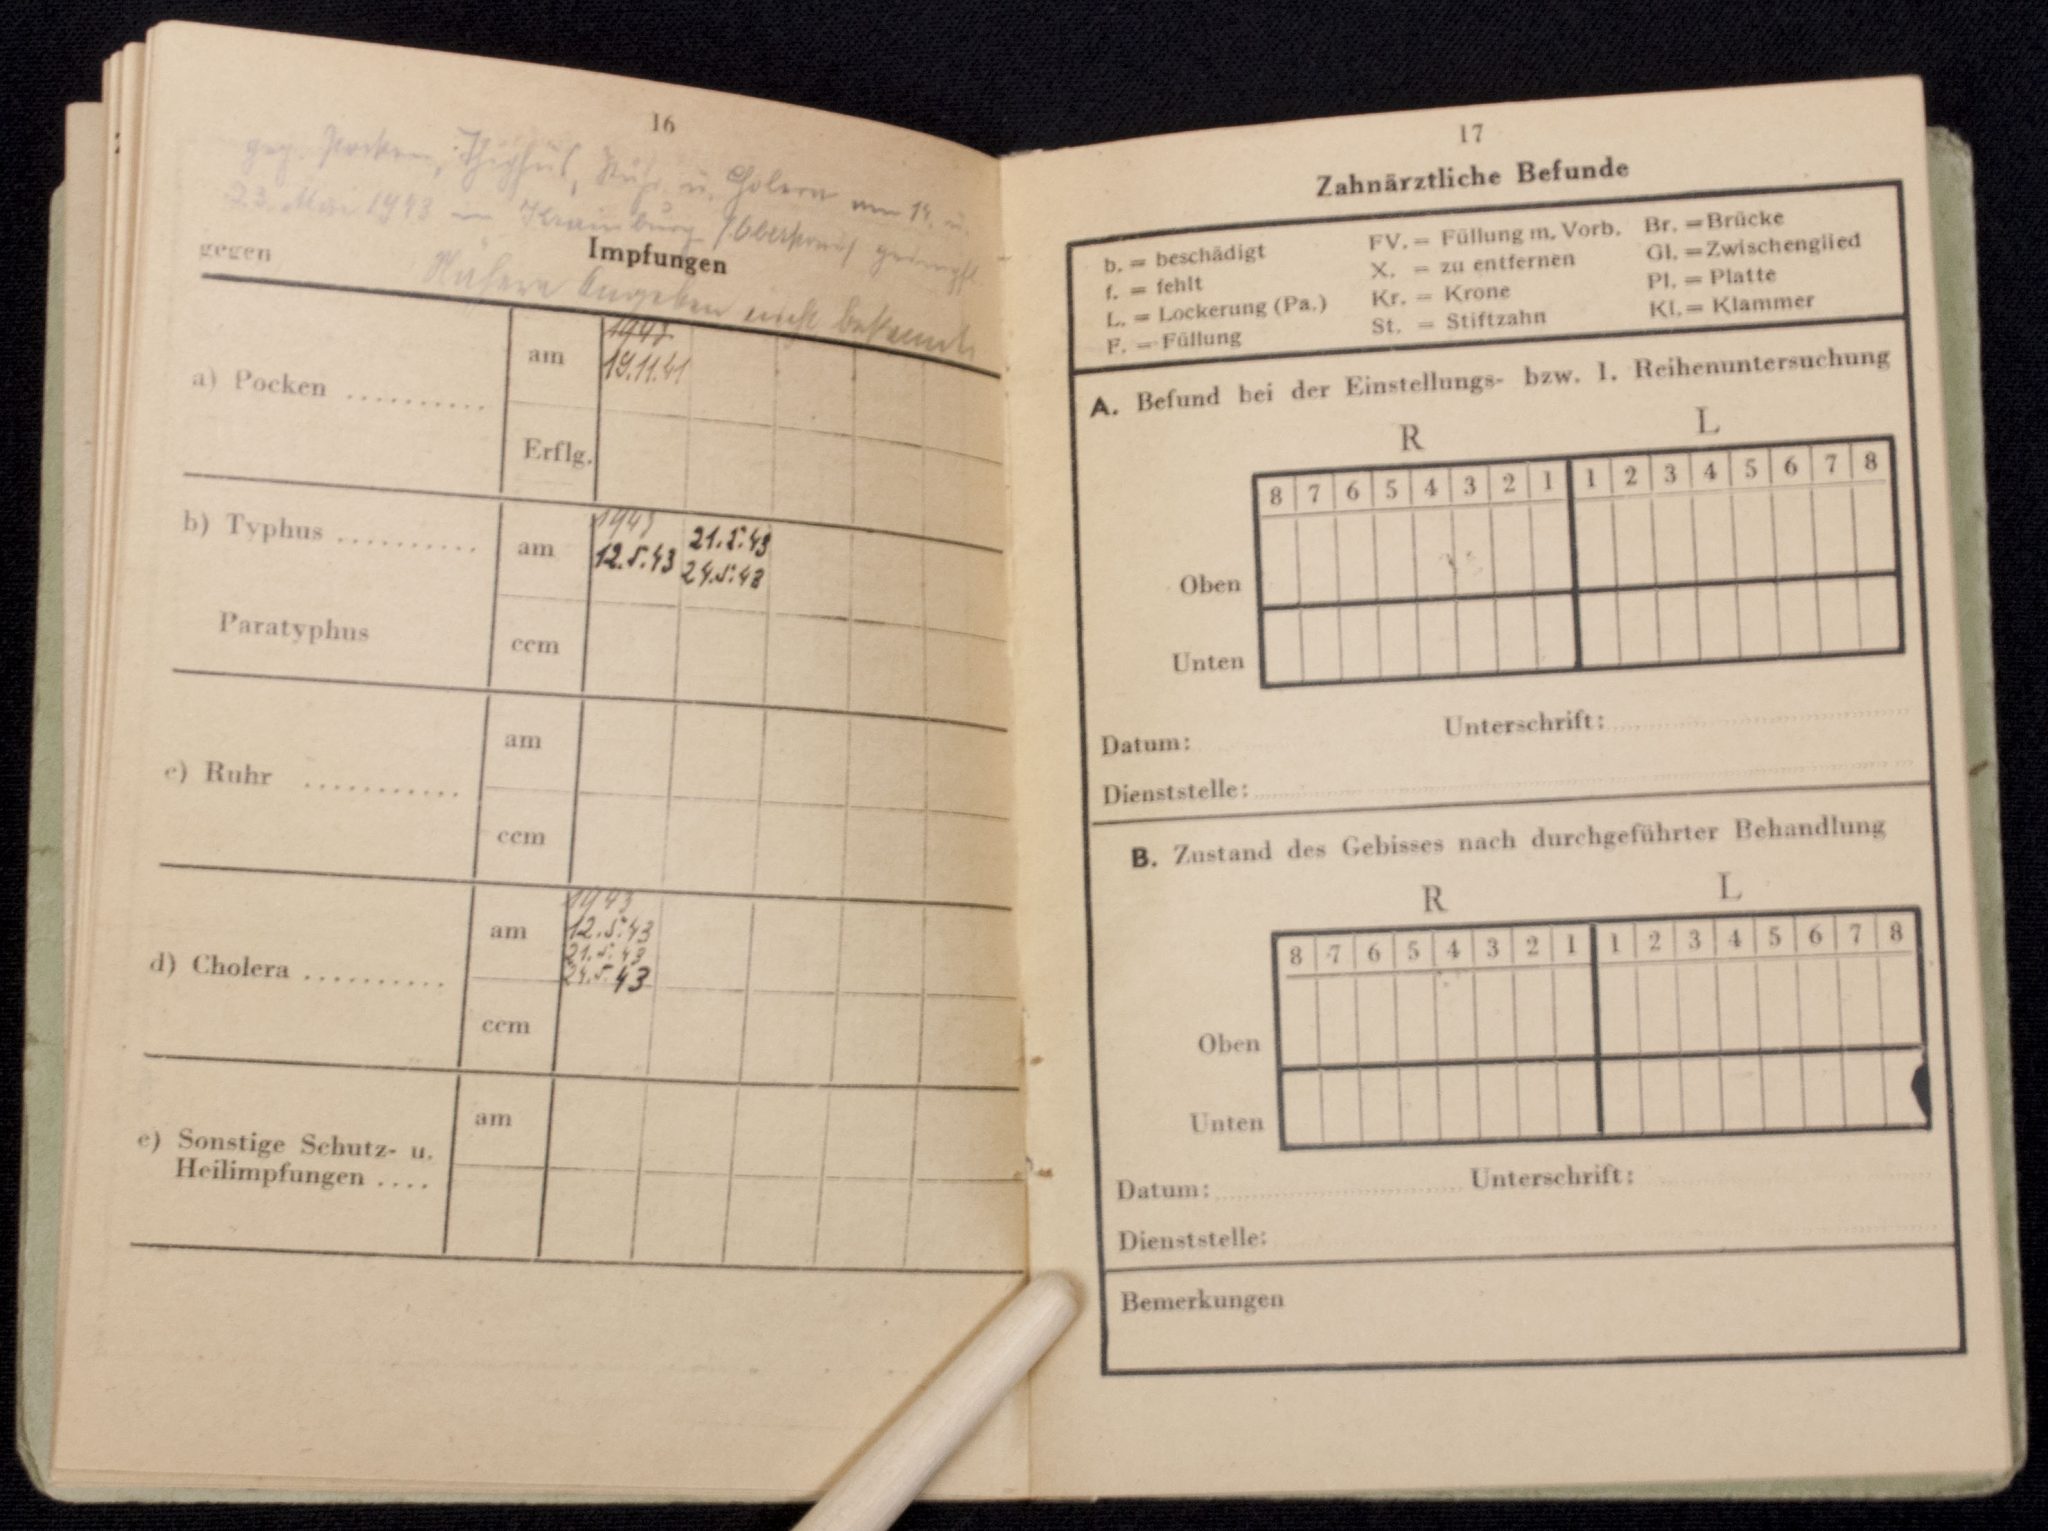 16
geg. Pocken, Typhus, Ruhr u. Cholera am 14. u.
23. Mai 1943 in Krainburg / Oberkrain geimpft
Impfungen
gegen
Nähere Angaben nicht bekannt
a) Pocken ..........
am
19.11.41
Erflg.
b) Typhus ..........
am
1943
12.5.43 21.5.43
24.5.43
Paratyphus
ccm
c) Ruhr ...........
am
ccm
d) Cholera ..........
am
1943
12.5.43
21.5.43
24.5.43
ccm
e) Sonstige Schutz- u.
Heilimpfungen ....
am
17
Zahnärztliche Befunde
b. = beschädigt FV. = Füllung m. Vorb. Br. = Brücke
f. = fehlt X. = zu entfernen Gl. = Zwischenglied
L. = Lockerung (Pa.) Kr. = Krone Pl. = Platte
F. = Füllung St. = Stiftzahn Kl. = Klammer
A. Befund bei der Einstellungs- bzw. 1. Reihenuntersuchung
R L
8 7 6 5 4 3 2 1 1 2 3 4 5 6 7 8
Oben
Unten
Datum: Unterschrift:
Dienststelle:
B. Zustand des Gebisses nach durchgeführter Behandlung
R L
8 7 6 5 4 3 2 1 1 2 3 4 5 6 7 8
Oben
Unten
Datum: Unterschrift:
Dienststelle:
Bemerkungen